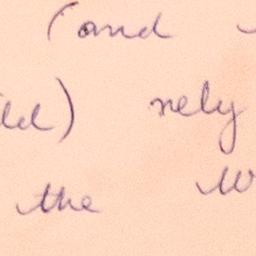 (and
ld) rely
the